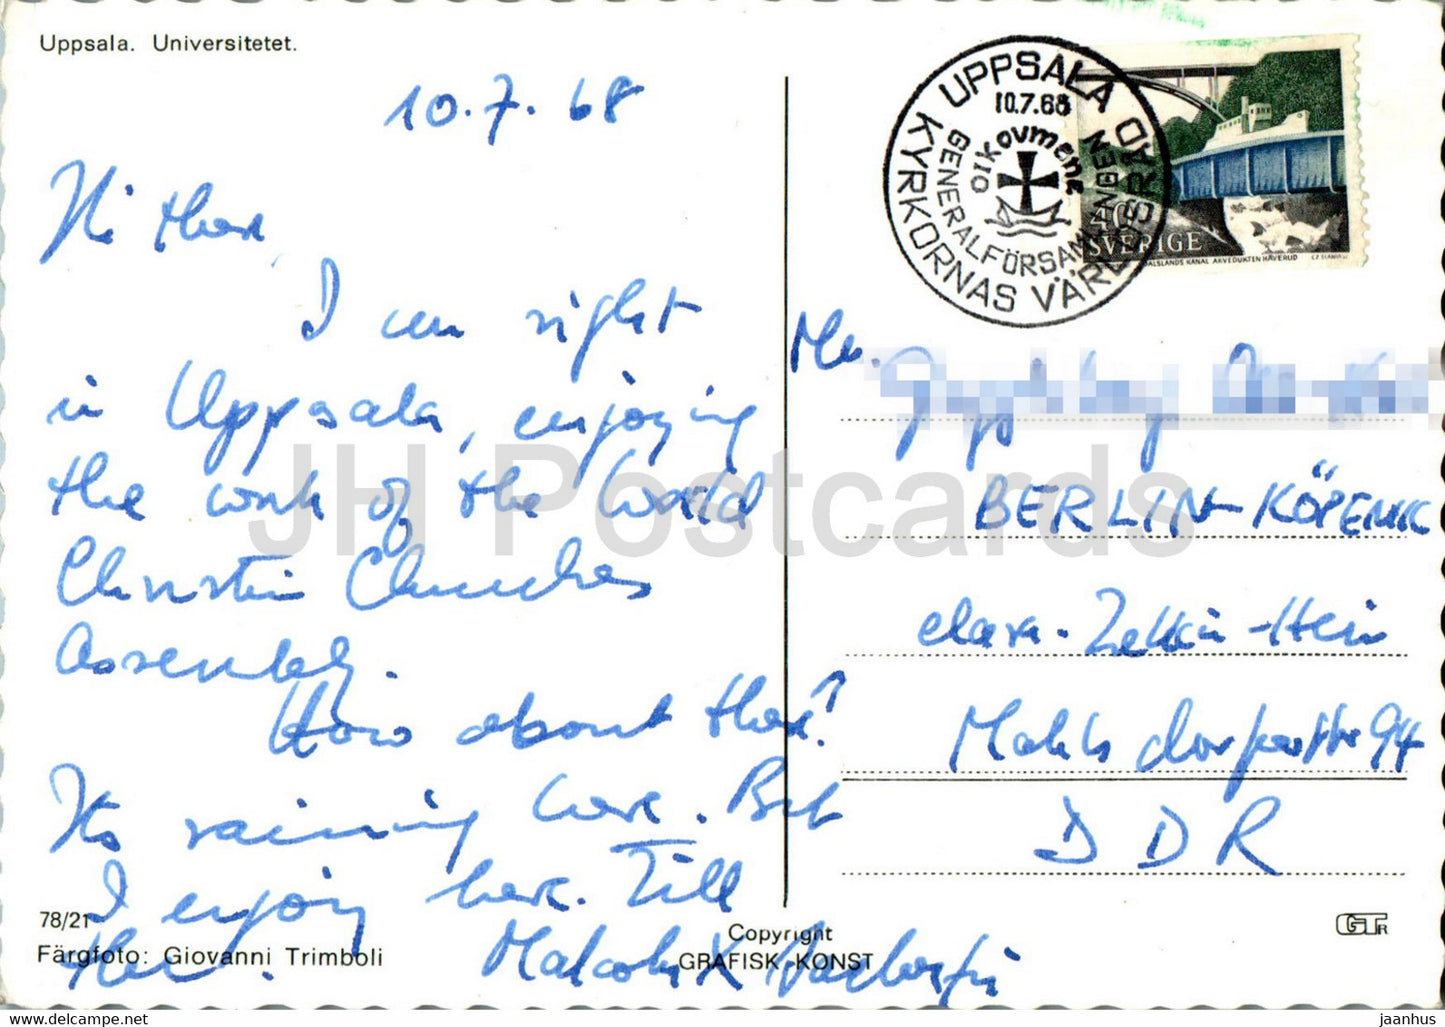 Uppsala. Universitetet.
10.7.68
Hi there,
I am right
in Uppsala, enjoying
the work of the World
Christian Churches
Assembly.
How about there?
Its raining here. But
I enjoy here. Till
then.
78/21
Färgfoto: Giovanni Trimboli
Copyright
GRAFISK KONST
GTR
UPPSALA
KYRKORNAS VÄRLDSRÅD
GENERALFÖRSAMLINGEN
10.7.68
OIKOVMENE
40
SVERIGE
DALSLANDS KANAL AKVEDUKTEN HÅVERUD
BERLIN-KÖPENIK
Clara-Zetkin-Heim
Mahlsdorferstr 94
DDR
JH Postcards
jaanhus